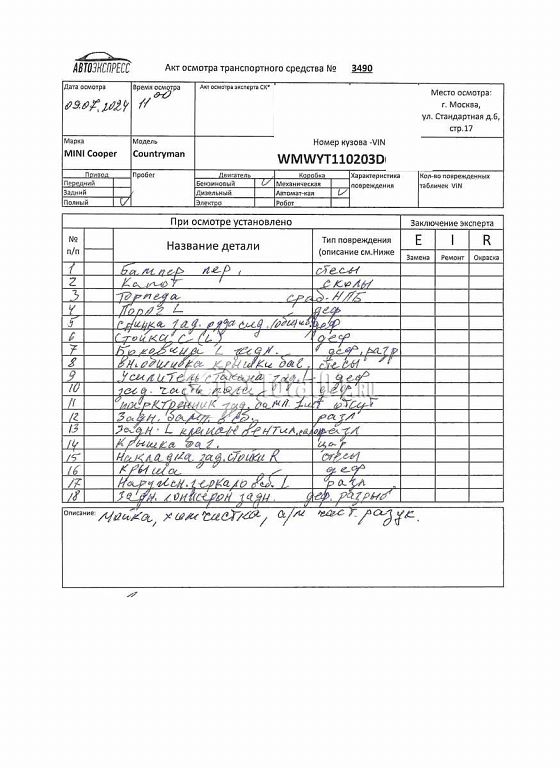 АВТОЭКСПРЕСС
Акт осмотра транспортного средства № 3490
Дата осмотра Время осмотра Акт осмотра эксперта СК*
09.07.2024 11 00
Место осмотра:
г. Москва,
ул. Стандартная д.6,
стр.17
Марка Модель Номер кузова -VIN
MINI Cooper Countryman WMWYT110203D
Привод Пробег Двигатель Коробка Характеристика повреждения Кол-во поврежденных табличек VIN
Передний Бензиновый V Механическая
Задний Дизельный Автомат-кая V
Полный V Электро Робот
При осмотре установлено Заключение эксперта
№ п/п Название детали Тип повреждения (описание см.Ниже E I R
Замена Ремонт Окраска
1 Бампер пер, стесы
2 Капот сколы
3 Торпеда сраб-НПБ
4 Порог L деф
5 спинка зад. деф
6 Стойка С (L) деф
7 Боковина L задн. деф, разр
8 вн. обшивка крышки баг, стесы
9 Усилитель зад. деф
10 зад. часть пола деф
11 зад. бамп. отсут
12 Задн. бамп. разл
13 Задн. L разл
14 Крышка баг. цар
15 Накладка зад. стойки R стесы
16 Крыша деф
17 Наружн. зеркало L разл
18 лонжерон задн. деф. разрыв
Описание: Мойка, химчистка, а/м част. разук.